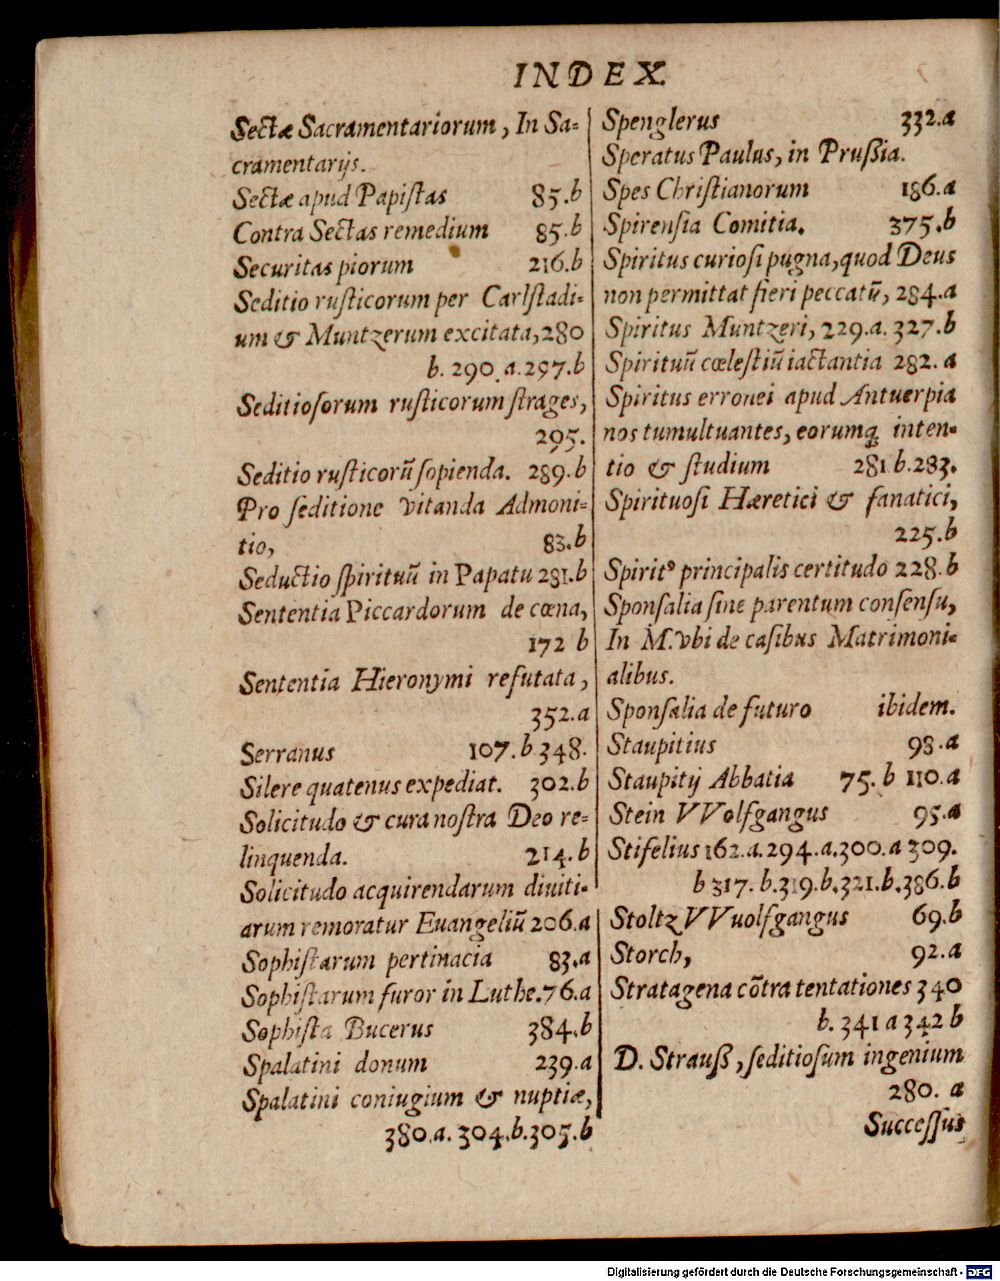 INDEX
Sectæ Sacramentariorum, In Sa-
cramentarijs.
Sectæ apud Papistas 85.b
Contra Sectas remedium 85.b
Securitas piorum 216.b
Seditio rusticorum per Carlstadi-
um & Muntzerum excitata, 280
b. 290.a.297.b
Seditiosorum rusticorum strages,
295.
Seditio rusticorū sopienda. 289.b
Pro seditione vitanda Admoni-
tio, 83.b
Seductio spirituū in Papatu 281.b
Sententia Piccardorum de cœna,
172 b
Sententia Hieronymi refutata,
352.a
Serranus 107.b 348.
Silere quatenus expediat. 302.b
Solicitudo & cura nostra Deo re-
linquenda. 214.b
Solicitudo acquirendarum diuiti-
arum remoratur Euangeliū 206.a
Sophistarum pertinacia 83.a
Sophistarum furor in Luthe.76.a
Sophista Bucerus 384.b
Spalatini donum 239.a
Spalatini coniugium & nuptiæ,
380.a. 304.b.305.b
Spenglerus 332.a
Speratus Paulus, in Prußia.
Spes Christianorum 186.a
Spirensia Comitia. 375.b
Spiritus curiosi pugna, quod Deus
non permittat fieri peccatū, 284.a
Spiritus Muntzeri, 229.a. 327.b
Spirituū cœlestiū iactantia 282. a
Spiritus erronei apud Antuerpia
nos tumultuantes, eorumq; inten-
tio & studium 281 b.283.
Spirituosi Hæretici & fanatici,
225.b
Spirit⁹ principalis certitudo 228.b
Sponsalia sine parentum consensu,
In M. vbi de casibus Matrimoni-
alibus.
Sponsalia de futuro ibidem.
Staupitius 98.a
Staupitij Abbatia 75. b 110.a
Stein VVolfgangus 95.a
Stifelius 162.a.294.a.300.a 309.
b 317.b.319.b.321.b.386.b
Stoltz VVuolfgangus 69.b
Storch, 92.a
Stratagena cōtra tentationes 340
b. 341 a 342 b
D. Strauß, seditiosum ingenium
280. a
Successus
Digitalisierung gefördert durch die Deutsche Forschungsgemeinschaft - DFG